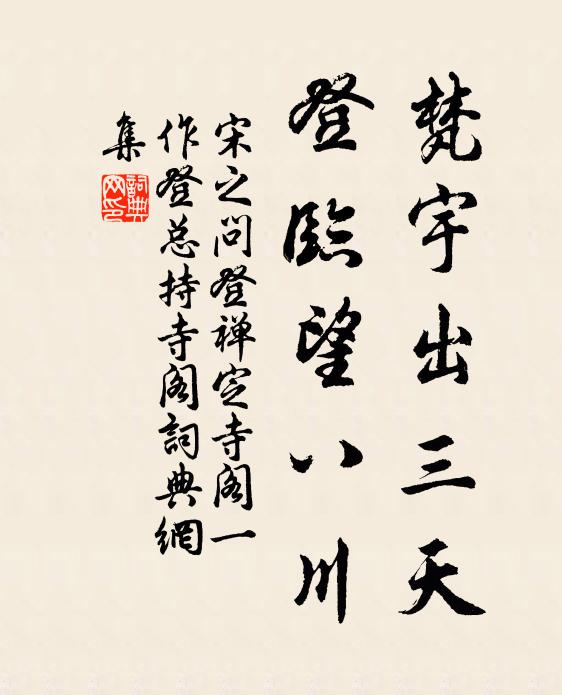 梵宇出三天
登臨望八川
宋之问登禅定寺阁一
作登总持寺阁詞典網
集
詞典
网印